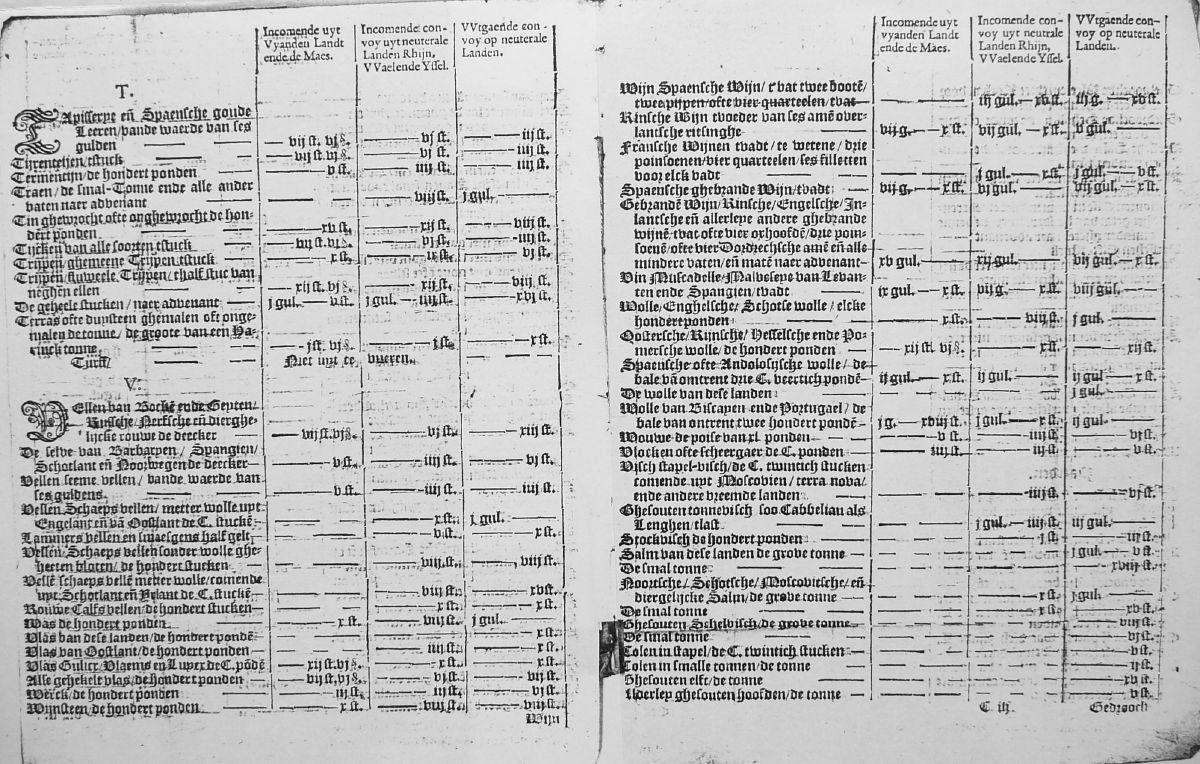 Incomende uyt
Vyanden Landt
ende de Maes.
Incomende con-
voy uyt neuterale
Landen Rhijn,
VVaelende Yssel.
VVtgaende con-
voy op neuterale
Landen.
T.
TApisserye en̄ Spaensche goude
Leeren/vande waerde van ses
gulden — vij st. vj — vj st. — iiij st.
Tirenteijen/tstuck — vij st. vj — vj st. — iiij st.
Termentijn/de hondert ponden — v st. — iiij st. — iiij st.
Traen/de smal-Tonne ende alle ander
baten naer advenant — — viij st. j gul.
Tin ghewrocht ofte onghewrocht de hon-
dert ponden — xv st. — xij st. — viij st.
Tijcken van alle soorten tstuck — vij st. vj — vj st. — iiij st.
Trijpen/ghemeene Trijpen/tstuck — x st. — ix st. — vj st.
Trijpen/fluweele Trijpen/thalf stuc van
neghen ellen — xij st. vj — xij st. — viij st.
De geheele stucken/naer advenant — j gul. — v st. j gul. — iiij st. — xvj st.
Terras ofte duysteen ghemalen oft onge-
malen de tonne/de groote van een Ha-
rinck tonne — j st. vj — j st. — x st.
Turf/ — Niet uyt te vueren.
V.
VEllen van Bocken ende Geyten/
Ruijsche/Nerfsche en̄ dierghe-
lijcke rouwe de deecker — vij st. vj — vj st. — xiij st.
De selve van Barbaryen/Spangien/
Schotlant en̄ Noorwegen de deecker — v st. — iiij st. — vj st.
Vellen seeme vellen/vande waerde van
ses guldens — v st. — iiij st. — iiij st.
Vellen Schaeps vellen/metter wolle uyt
Engelant en̄ vā Oostlant de C. stuckē — — x st. j gul.
Lammers vellen en smaesgens half gelt — — v st. — x st.
Vellen/Schaeps vellen sonder wolle ghe-
heeten bloten/de hondert stucken — — viij st. — viij st.
Vellē schaeps vellē metter wolle/comende
uyt Schotlant en̄ Yrlant de C. stuckē — — viij st. — xv st.
Rouwe Calfs vellen/de hondert stucken — — x st. — x st.
Was de hondert ponden — x st. — viij st. j gul.
Vlas van dese landen/de hondert pondē — — — x st.
Vlas van Oostlant/de hondert ponden — — iiij st. — x st.
Vlas Gulicx/Vlaems en Luyex de C. pōdē — xij st. vj — x st. — x st.
Alle gehekelt vlas/de hondert ponden — vij st. vj — vj st. — vij st.
Werck/de hondert ponden — iij st. — iij st. — vj st.
Wijnsteen/de hondert ponden — x st. — viij st. — viij st.
Wijn
Incomende uyt
vyanden Landt
ende de Maes.
Incomende con-
voy uyt neutrale
Landen Rhijn,
VVaelende Yssel.
VVtgaende con-
voy op neuterale
Landen.
Wijn Spaensche Wijn/t'vat twee bootē/
twee pijpen/ofte vier quarteelen/tvat — — iij gul. — xv st. iij g. — xv st.
Rinsche Wijn tvoeder van ses amē over-
lantsche riesinghe — vij g. — x st. vij gul. — x st. v gul.
Fransche Wijnen tvadt/te wetene/drie
poinsoenen/vier quarteelen/ses filletten
voor elck vadt — — j gul. — x st. j gul. — v st.
Spaensche ghebrande Wijn/tvadt — vij g. — x st. vj gul. vij gul. — x st.
Gebrandē Wijn/Rinsche/Engelsche/In-
lantsche en̄ allerleye andere ghebrande
wijnē/tvat ofte vier oxhoofdē/drie poin-
soenē/ofte vier Dordrechsche amē en̄ alle
mindere vaten/en̄ matē naer advenant — xv gul. xij gul. — vij gul. — x st.
Vin Muscadelle/Malveseye van Levan-
ten ende Spangien/tvadt — ix gul. — vij g. — x st. viij gul.
Wolle/Enghelsche/Schotse wolle/elcke
hondert ponden — — viij st. j gul.
Oostersche/Rijnsche/Hesselsche ende Po-
mersche wolle/de hondert ponden — xij st. vj — x st. — xij st.
Spaensche ofte Andolosijcke wolle/de
bale vā omtrent drie C. veertich pondē — ij gul. — x st. ij gul. — ij gul. — x st.
De wolle van dese landen — — j gul.
Wolle van Biscayen ende Portugael/de
bale van ontrent twee hondert pondē — j g. — xviij st. j gul. — x st. ij gul.
Wouwe de poise van xl. ponden — v st. — iiij st. — vj st.
Vlocken ofte scheergaer de C. ponden — iiij st. — iij st. — v st.
Visch stapel-visch/de C. twintich stucken
comende uyt Moscovien/terra nova/
ende andere vreemde landen — — iiij st. — vj st.
Ghesouten tonnevisch soo Cabbeliau als
Lenghen/tlast — — j gul. — iiij st. iij gul.
Stockvisch de hondert ponden — — j st. — iij st.
Salm van dese landen de grove tonne — — j gul. — v st.
De smal tonne — — xviij st.
Noortsche/Schotsche/Moscovitsche/en̄
diergelijcke Salm/de grove tonne — — x st. j gul.
De smal tonne — — x st. — xv st.
Ghesouten Schelvisch/de grove tonne — — viij st.
De smal tonne — — vj st.
Colen in stapel/de C. twintich stucken — — ij st.
Colen in smalle tonnen/de tonne — — ij st.
Ghesouten elft/de tonne — — xv st.
Allerley ghesouten hoofden/de tonne — — v st.
C iij
Gedrooch